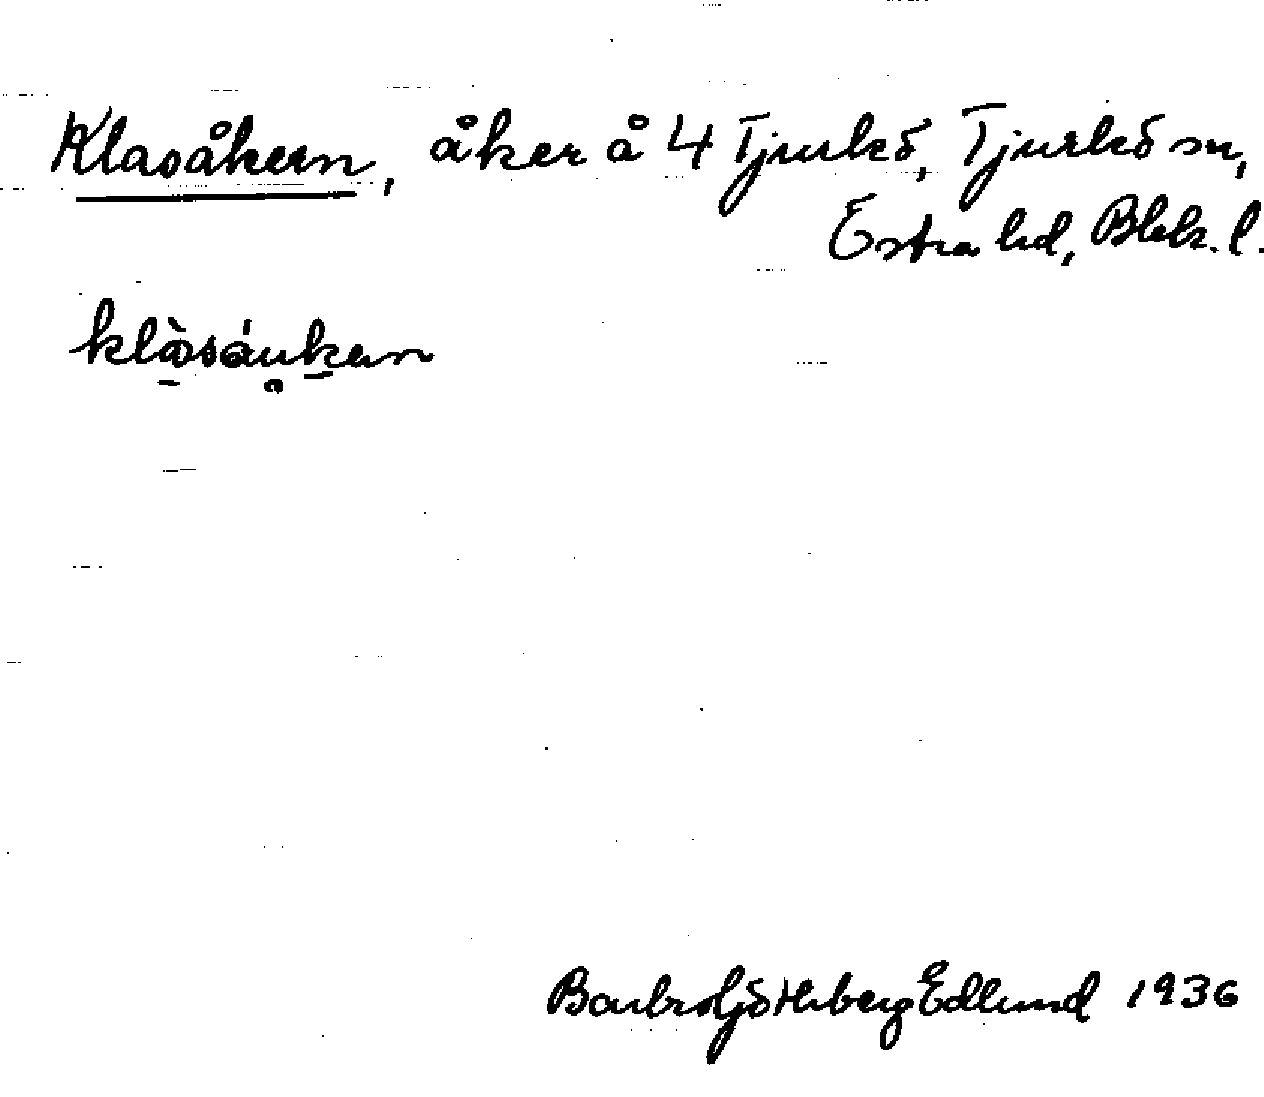 Klasåkern, åker å 4 Tjurkö, Tjurkö sn,
Östra hd, Blek. l.
klòsáukan
Barbro Götherberg Edlund 1936